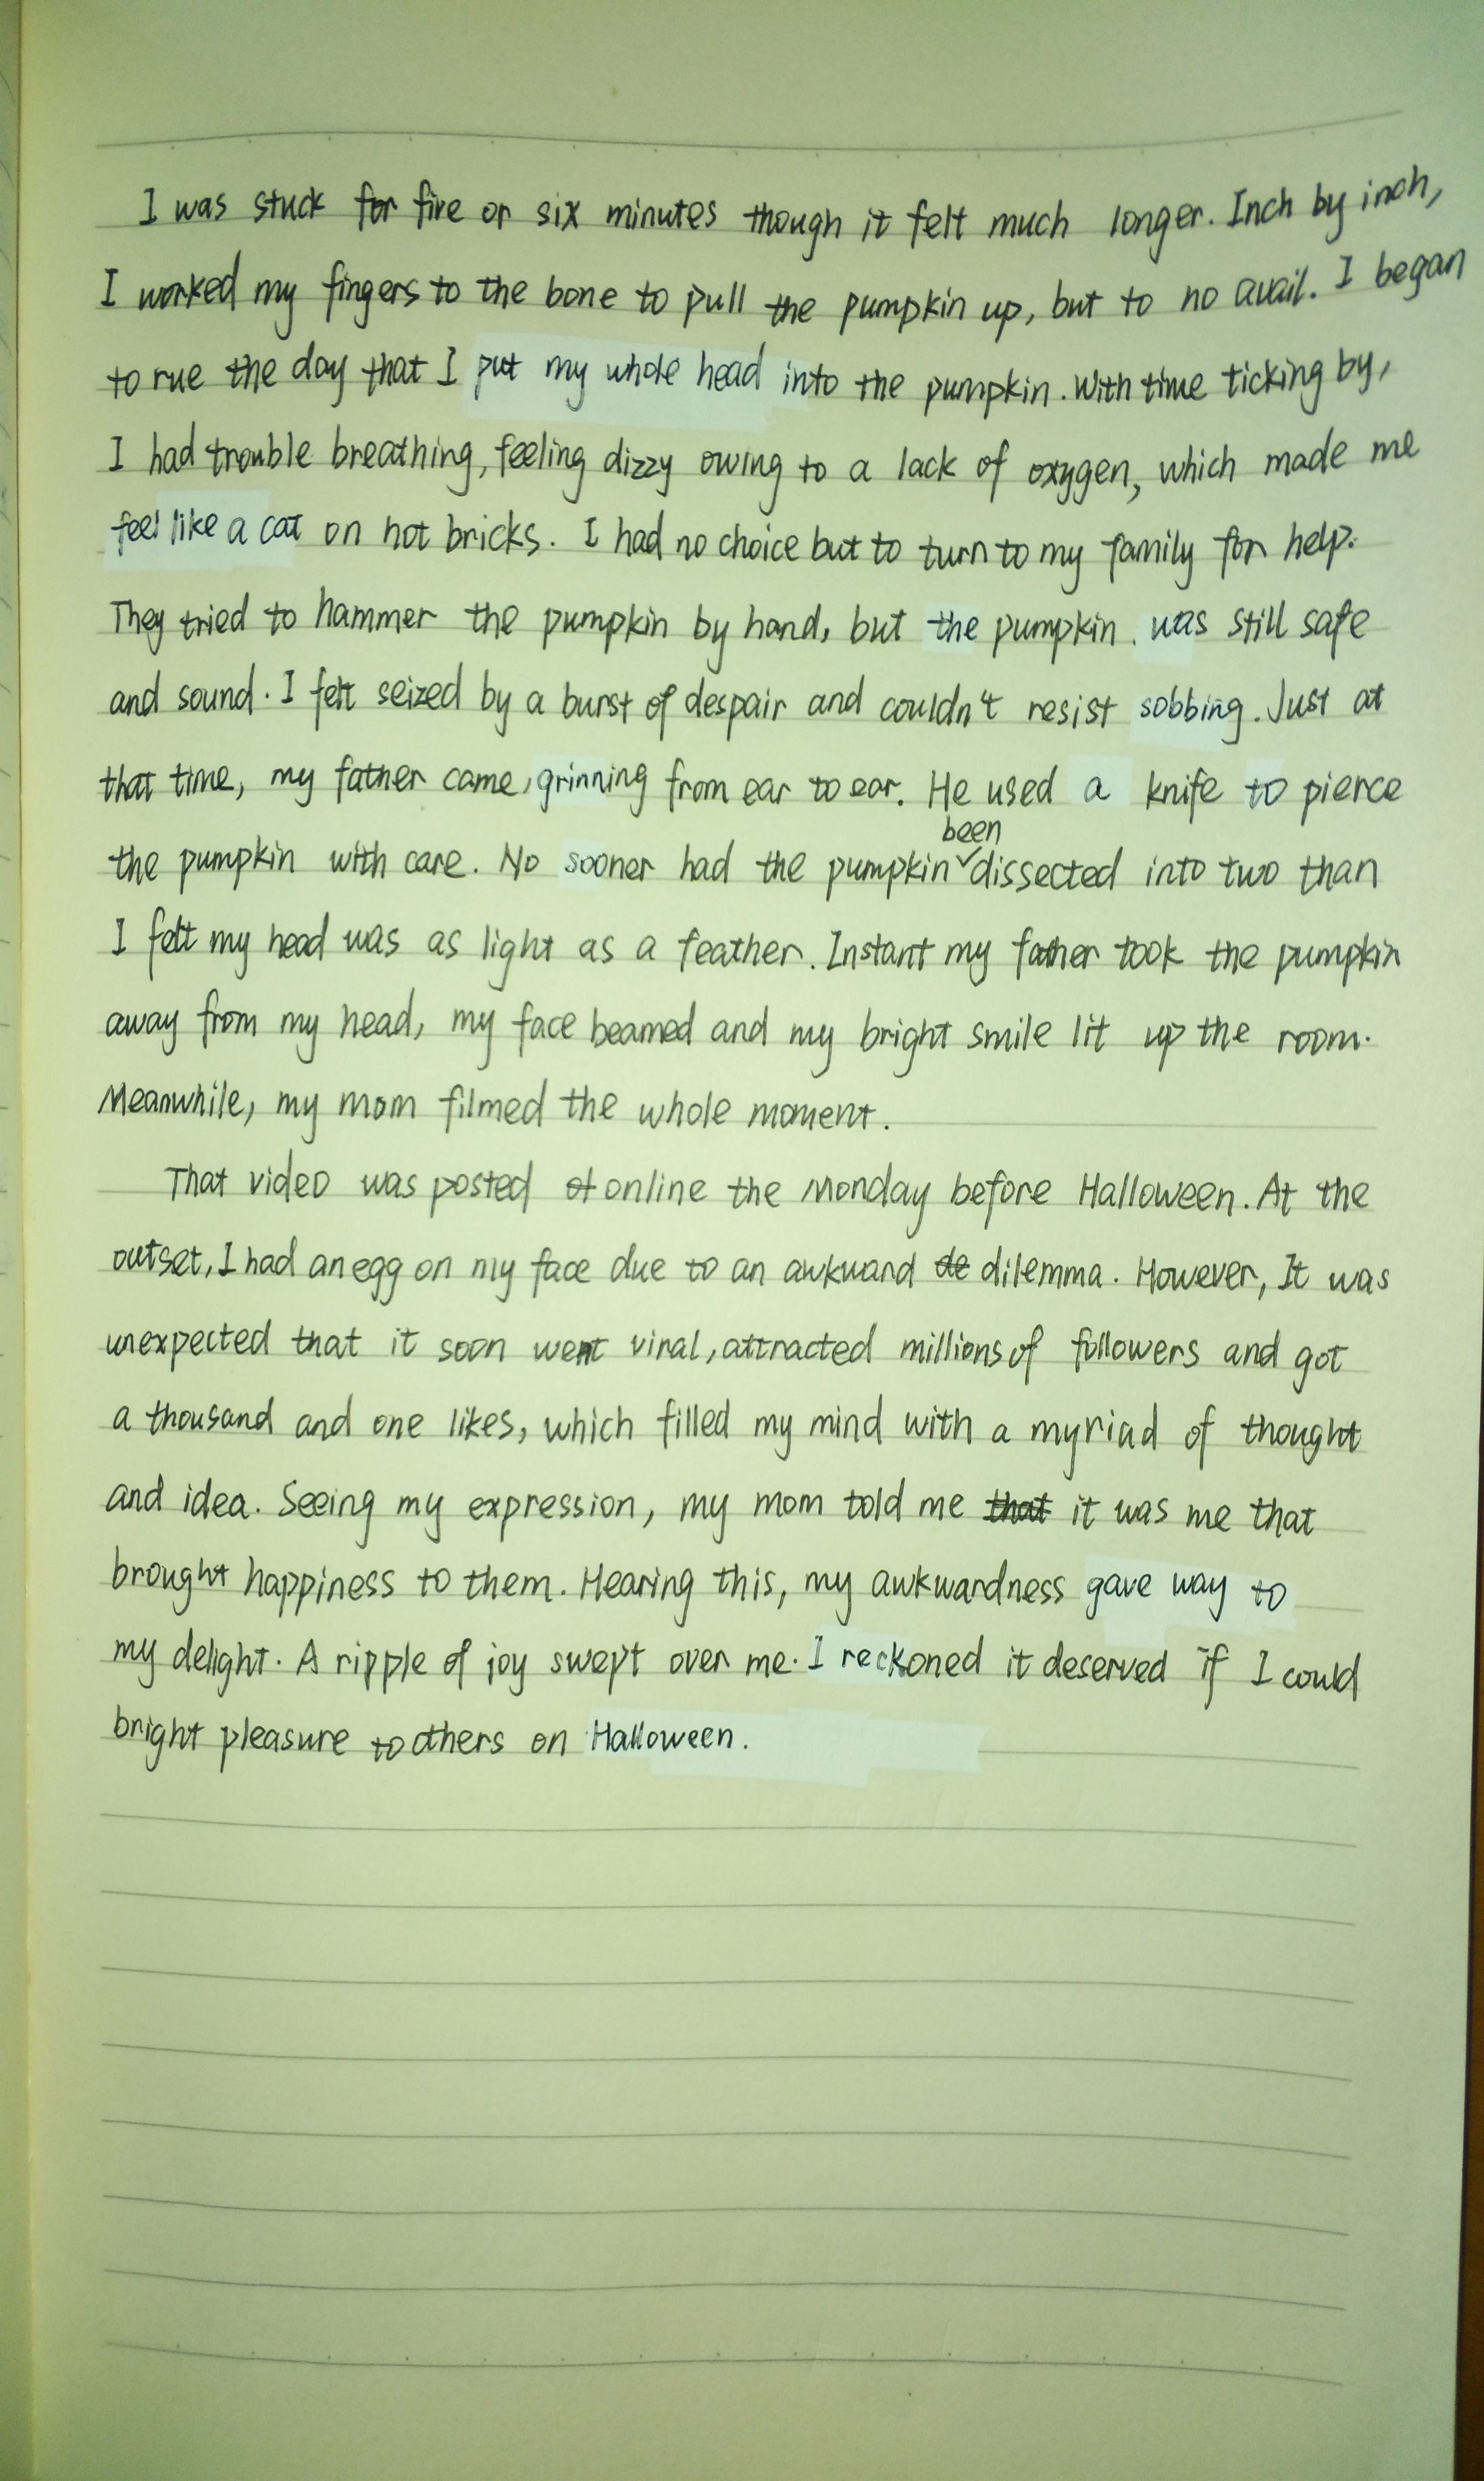 I was stuck for five or six minutes though it felt much longer. Inch by inch,
I worked my fingers to the bone to pull the pumpkin up, but to no avail. I began
to rue the day that I put my whole head into the pumpkin. With time ticking by,
I had trouble breathing, feeling dizzy owing to a lack of oxygen, which made me
feel like a cat on hot bricks. I had no choice but to turn to my family for help.
They tried to hammer the pumpkin by hand, but the pumpkin was still safe
and sound. I felt seized by a burst of despair and couldn't resist sobbing. Just at
that time, my father came, grinning from ear to ear. He used a knife to pierce
the pumpkin with care. No sooner had the pumpkin been dissected into two than
I felt my head was as light as a feather. Instant my father took the pumpkin
away from my head, my face beamed and my bright smile lit up the room.
Meanwhile, my mom filmed the whole moment.
That video was posted online the Monday before Halloween. At the
outset, I had an egg on my face due to an awkward dilemma. However, It was
unexpected that it soon went viral, attracted millions of followers and got
a thousand and one likes, which filled my mind with a myriad of thought
and idea. Seeing my expression, my mom told me it was me that
brought happiness to them. Hearing this, my awkwardness gave way to
my delight. A ripple of joy swept over me. I reckoned it deserved if I could
bright pleasure to others on Halloween.